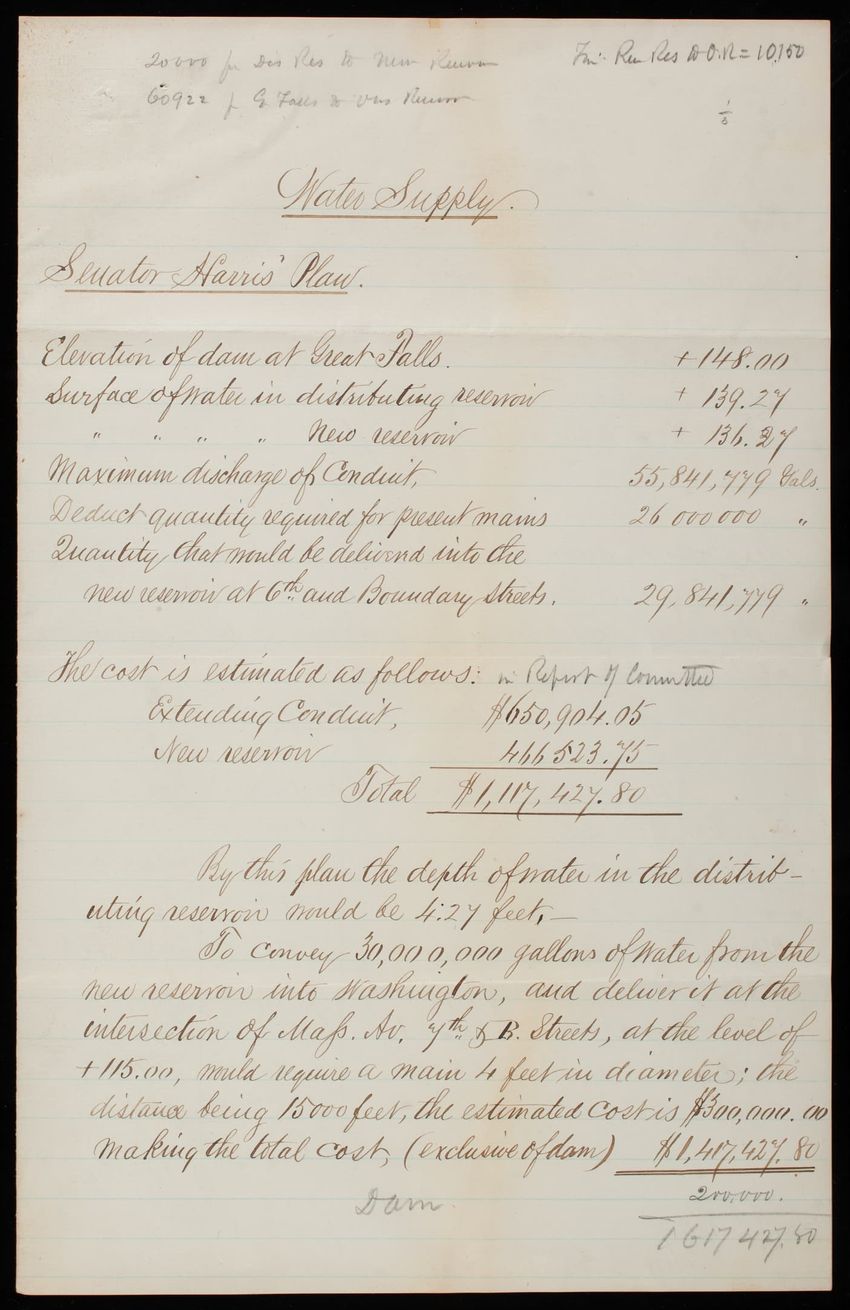 20000 fr Dis Res to New Reserv
Res to D.R = 10,150
60922 fr G Falls to
1/5
Water Supply.
Senator Harris' Plan.
Elevation of dam at Great Falls. +148.00
Surface of water in distributing reservoir + 139.27
" " " " New reservoir + 136.27
Maximum discharge of Conduit, 55,841,779 Gals.
Deduct quantity required for present mains 26 000 000 "
Quantity that would be delivered into the
new reservoir at 6th and Boundary Streets. 29,841,779 "
The cost is estimated as follows: in Report of Committee
Extending Conduit, $650,904.05
New reservoir 466 523.75
Total $1,117,427.80
By this plan the depth of water in the distrib-
uting reservoir would be 4.27 feet,—
To convey 30,000,000 gallons of water from the
new reservoir into Washington, and deliver it at the
intersection of Mass. Av. 7th & B. Streets, at the level of
+115.00, would require a main 4 feet in diameter; the
distance being 15000 feet, the estimated cost is $300,000.00
making the total cost, (exclusive of dam) $1,417,427.80
Dam 200,000.
1617427.80